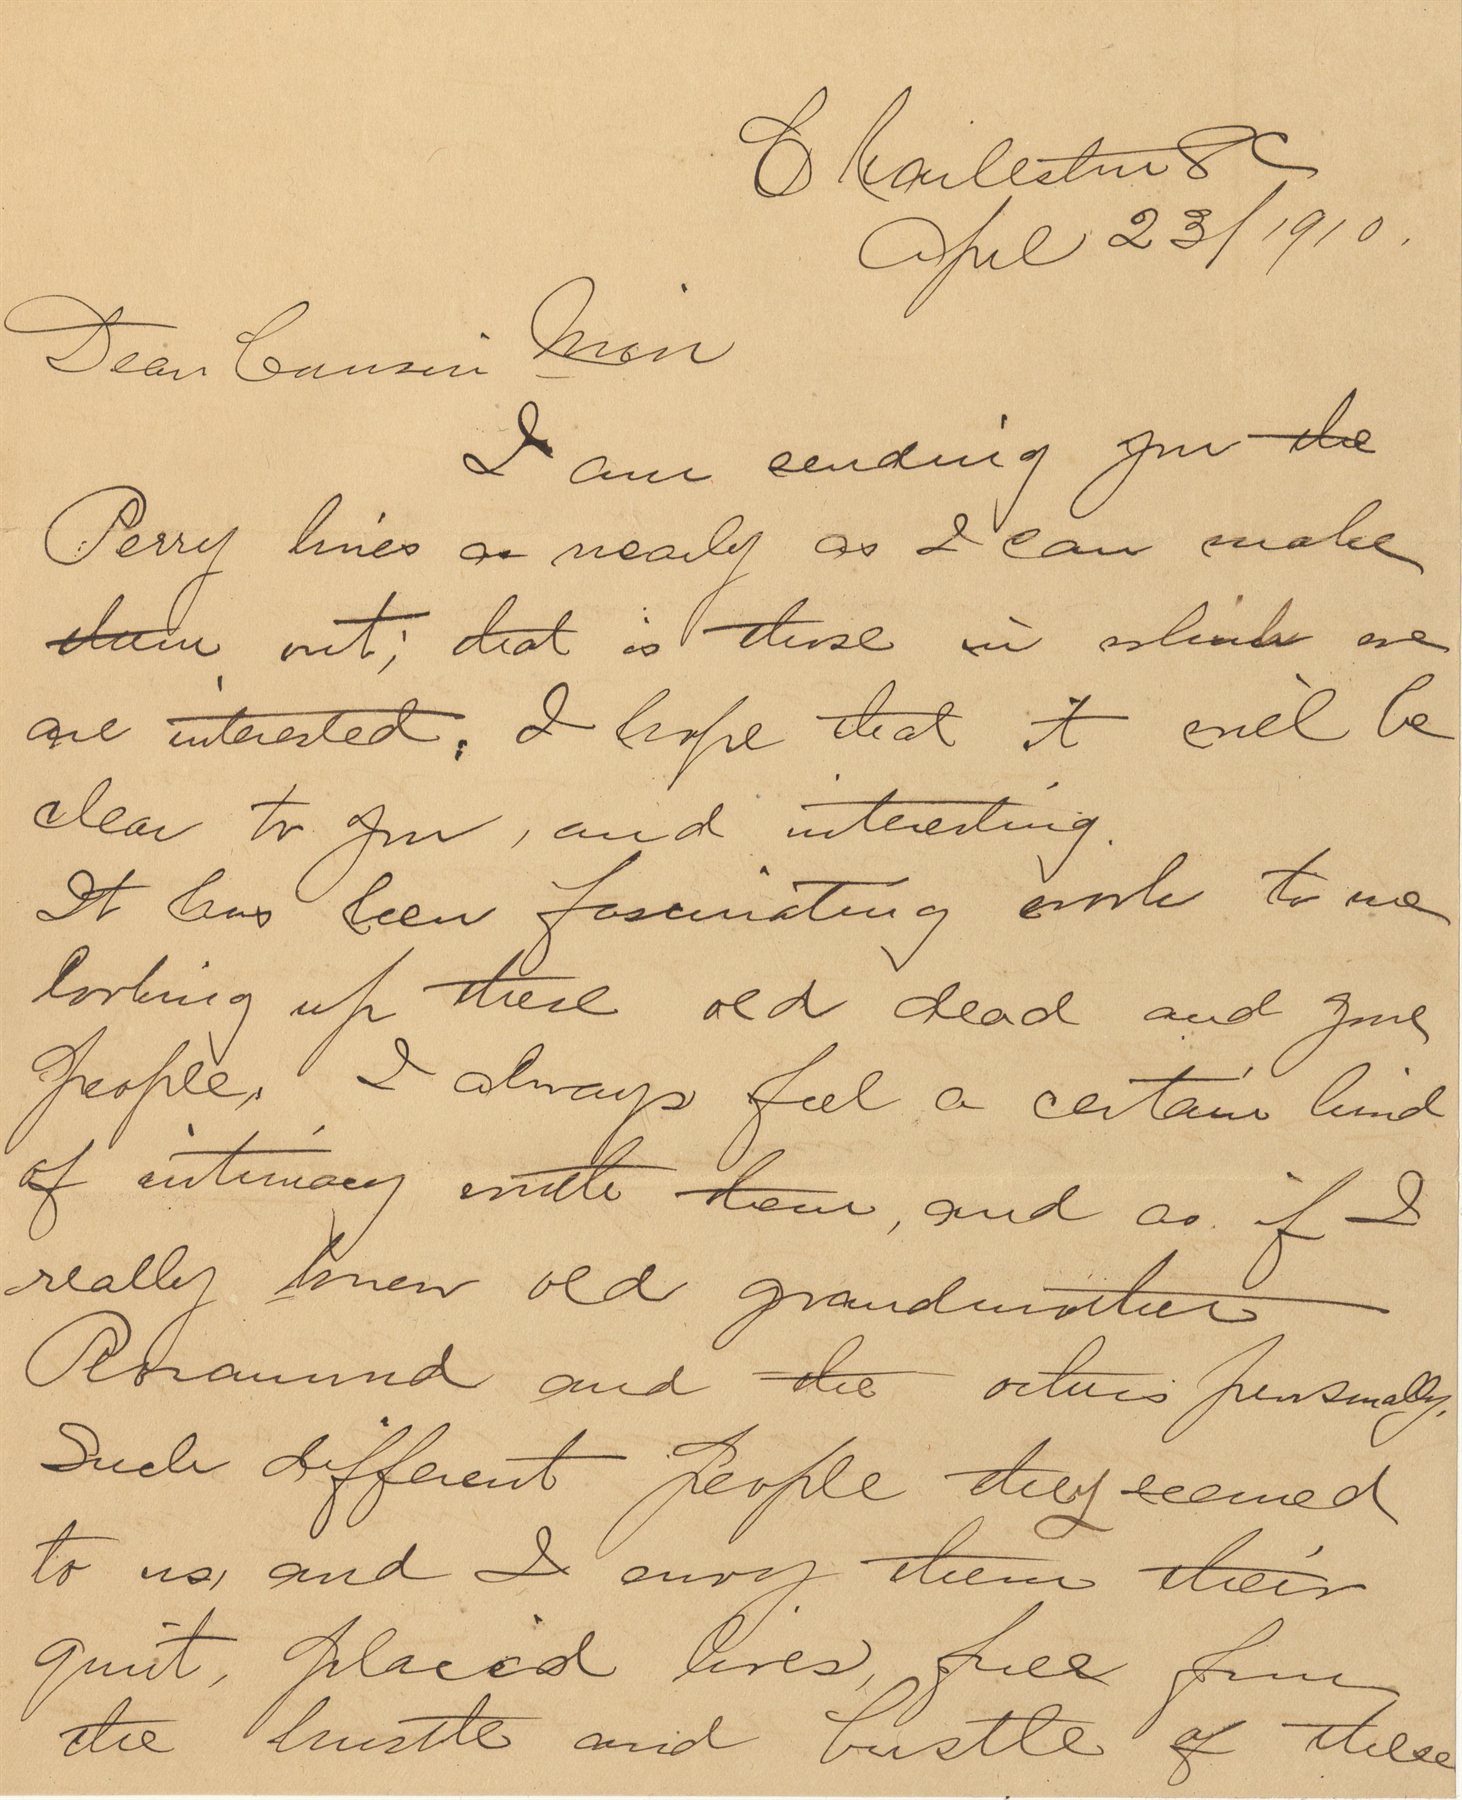 Charleston S C
April 23/1910.
Dear Cousin Min
I am sending you the
Perry lines as nearly as I can make
them out; that is those in which we
are interested. I hope that it will be
clear to you, and interesting.
It has been fascinating work to me
looking up these old dead and gone
people. I always feel a certain kind
of intimacy with them, and as if I
really knew old grandmother
Rosamund and the others personally.
Such different people they seemed
to us, and I envy them their
quiet, placid lives, free from
the hustle and bustle of these